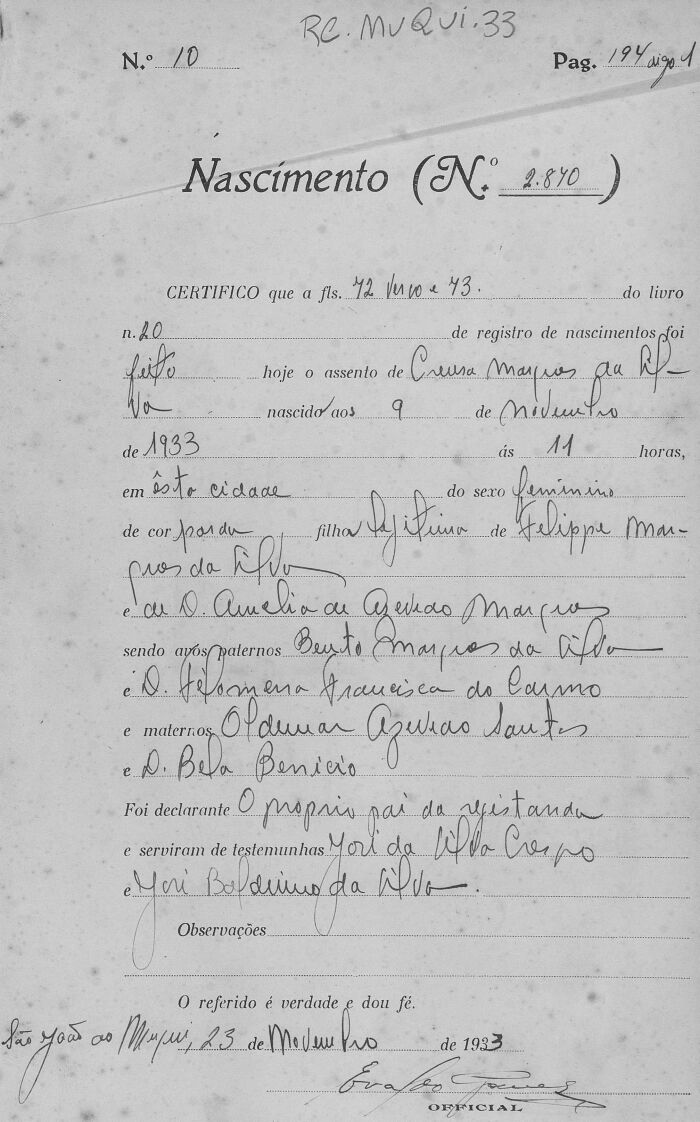 RC. MUQUI. 33
N.º 10 Pag. 194
Nascimento (N.º 2.840)
CERTIFICO que a fls. 72 verso e 73. do livro
n. 20 de registro de nascimentos foi
feito hoje o assento de Creusa Marques da Sil-
va nascido aos 9 de novembro
de 1933 ás 11 horas,
em ésta cidade do sexo feminino
de cor parda, filha legitima de Felippe Mar-
ques da Silva
e de D. Amelia de Azevedo Marques
sendo avós paternos Bento Marques da Silva
e D. Filomena Francisca do Carmo
e maternos Oldemar Azevedo Santos
e D. Bela Benicio
Foi declarante O proprio pai da registanda
e serviram de testemunhas da Silva Crespo
e da Silva.
Observações
O referido é verdade e dou fé.
São João do Muqui, 23 de Novembro de 1933
OFFICIAL